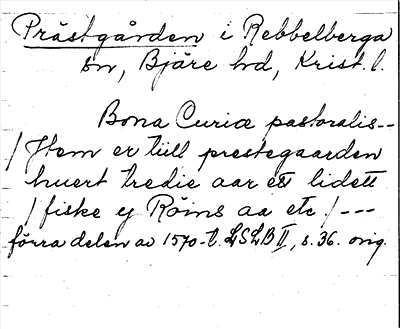 Prästgården i Rebbelberga
sn, Bjäre hd, Krist. l.
Bona Curiæ pastoralis--
/Item er tiill prestegaarden
huert tredie aar ett lidett
/fiske ej Röins aa etc./---
förra delen av 1570-t. LSLB II, s. 36. orig.